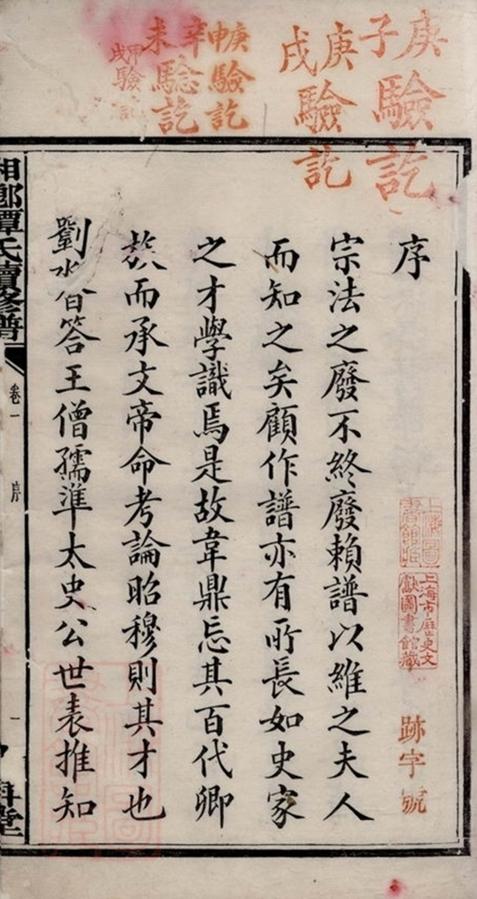 庚子驗訖
庚戌驗訖
庚申驗訖
辛未驗訖
甲戌驗訖
序
宗法之廢不終廢賴譜以維之夫人
而知之矣顧作譜亦有所長如史家
之才學識焉是故韋鼎忘其百代卿
族而承文帝命考論昭穆則其才也
劉杳答王僧孺準太史公世表推知
上海市歷史文
獻圖書館藏
跡字號
湘鄉譚氏續修譜
卷一
序
一